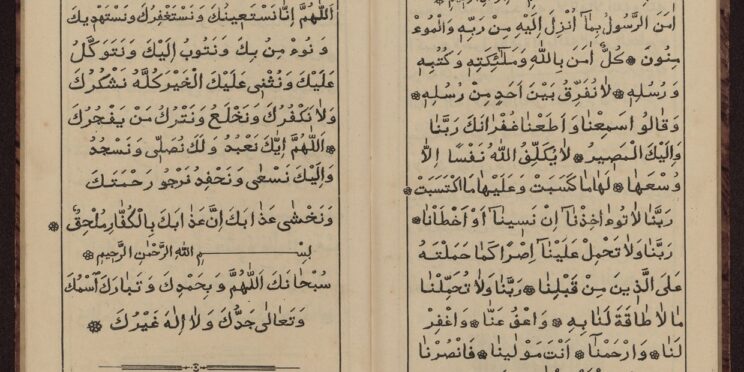 اٰمَنَ الرَّسُولُ بِمَٓا اُنْزِلَ اِلَيْهِ مِنْ رَبِّهٖ وَالْمُوءْ
مِنُونَ ۞ كُلٌّ اٰمَنَ بِاللّٰهِ وَمَلٰٓئِكَتِهٖ وَكُتُبِهٖ
وَرُسُلِهٖ ۞ لَا نُفَرِّقُ بَيْنَ اَحَدٍ مِنْ رُسُلِهٖ
وَقَالُو اسَمِعْنَا وَاَطَعْنَا غُفْرَانَكَ رَبَّنَا
وَاِلَيْكَ الْمَصِيرُ ۞ لَا يُكَلِّفُ اللّٰهُ نَفْسًا اِلَّا
وُسْعَهَا ۞ لَهَا مَا كَسَبَتْ وَعَلَيْهَا مَا اكْتَسَبَتْ ۞
رَبَّنَا لَا تُوءَاخِذْنَٓا اِنْ نَسِينَٓا اَوْ اَخْطَاْنَا ۞
رَبَّنَا وَلَا تَحْمِلْ عَلَيْنَٓا اِصْرًا كَمَا حَمَلْتَهُ
عَلَى الَّذِينَ مِنْ قَبْلِنَا ۞ رَبَّنَا وَلَا تُحَمِّلْنَا
مَا لَا طَاقَةَ لَنَا بِهٖ ۞ وَاعْفُ عَنَّا ۞ وَاغْفِرْ
لَنَا ۞ وَارْحَمْنَا ۞ اَنْتَ مَوْلٰينَا ۞ فَانْصُرْنَا
اَللّٰهُمَّ اِنَّا نَسْتَعِينُكَ وَنَسْتَغْفِرُكَ وَنَسْتَهْدِيكَ
وَنُوءْ مِنُ بِكَ وَنَتُوبُ اِلَيْكَ وَنَتَوَكَّلُ
عَلَيْكَ وَنُثْنِى عَلَيْكَ الْخَيْرَ كُلَّهُ نَشْكُرُكَ
وَلَا نَكْفُرُكَ وَنَخْلَعُ وَنَتْرُكُ مَنْ يَفْجُرُكَ
۞ اَللّٰهُمَّ اِيَّاكَ نَعْبُدُ وَلَكَ نُصَلِّى وَنَسْجُدُ
وَاِلَيْكَ نَسْعٰى وَنَحْفِدُ نَرْجُو رَحْمَتَكَ
وَنَخْشٰى عَذَابَكَ اِنَّ عَذَابَكَ بِالْكُفَّارِ مُلْحِقٌ
بِسْمِ اللّٰهِ الرَّحْمٰنِ الرَّحِيمِ ۞
سُبْحَانَكَ اَللّٰهُمَّ وَبِحَمْدِكَ وَتَبَارَكَ اسْمُكَ
وَتَعَالٰى جَدُّكَ وَلَا اِلٰهَ غَيْرُكَ ۞